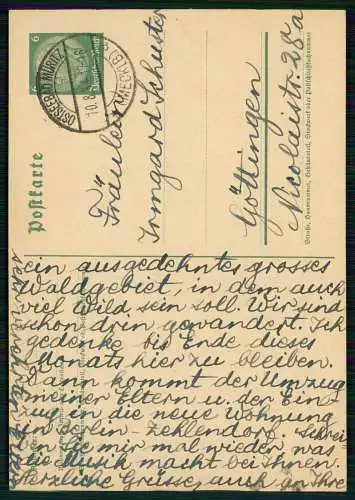 Postkarte
6
Deutsches Reich
OSTSEEBAD MÜRITZ
(MECKLB)
10.8.
Fräulein
Irmgard Schuster
Göttingen
Nicolaistr. 28a
Straße, Hausnummer, Gebäudeteil, Stockwerk oder Postschließfachnummer
ein ausgedehntes grosses
Waldgebiet, in dem auch
viel Wild sein soll. Wir sind
schon drin gewandert. Ich
gedenke bis Ende dieses
Monats hier zu bleiben.
Dann kommt der Umzug
meiner Eltern u. der Ein-
zug in die neue Wohnung
in Berlin-Zehlendorf. Schrei-
ben Sie mir mal wieder was
die Musik macht bei Ihnen.
Herzliche Grüsse, auch an Ihre